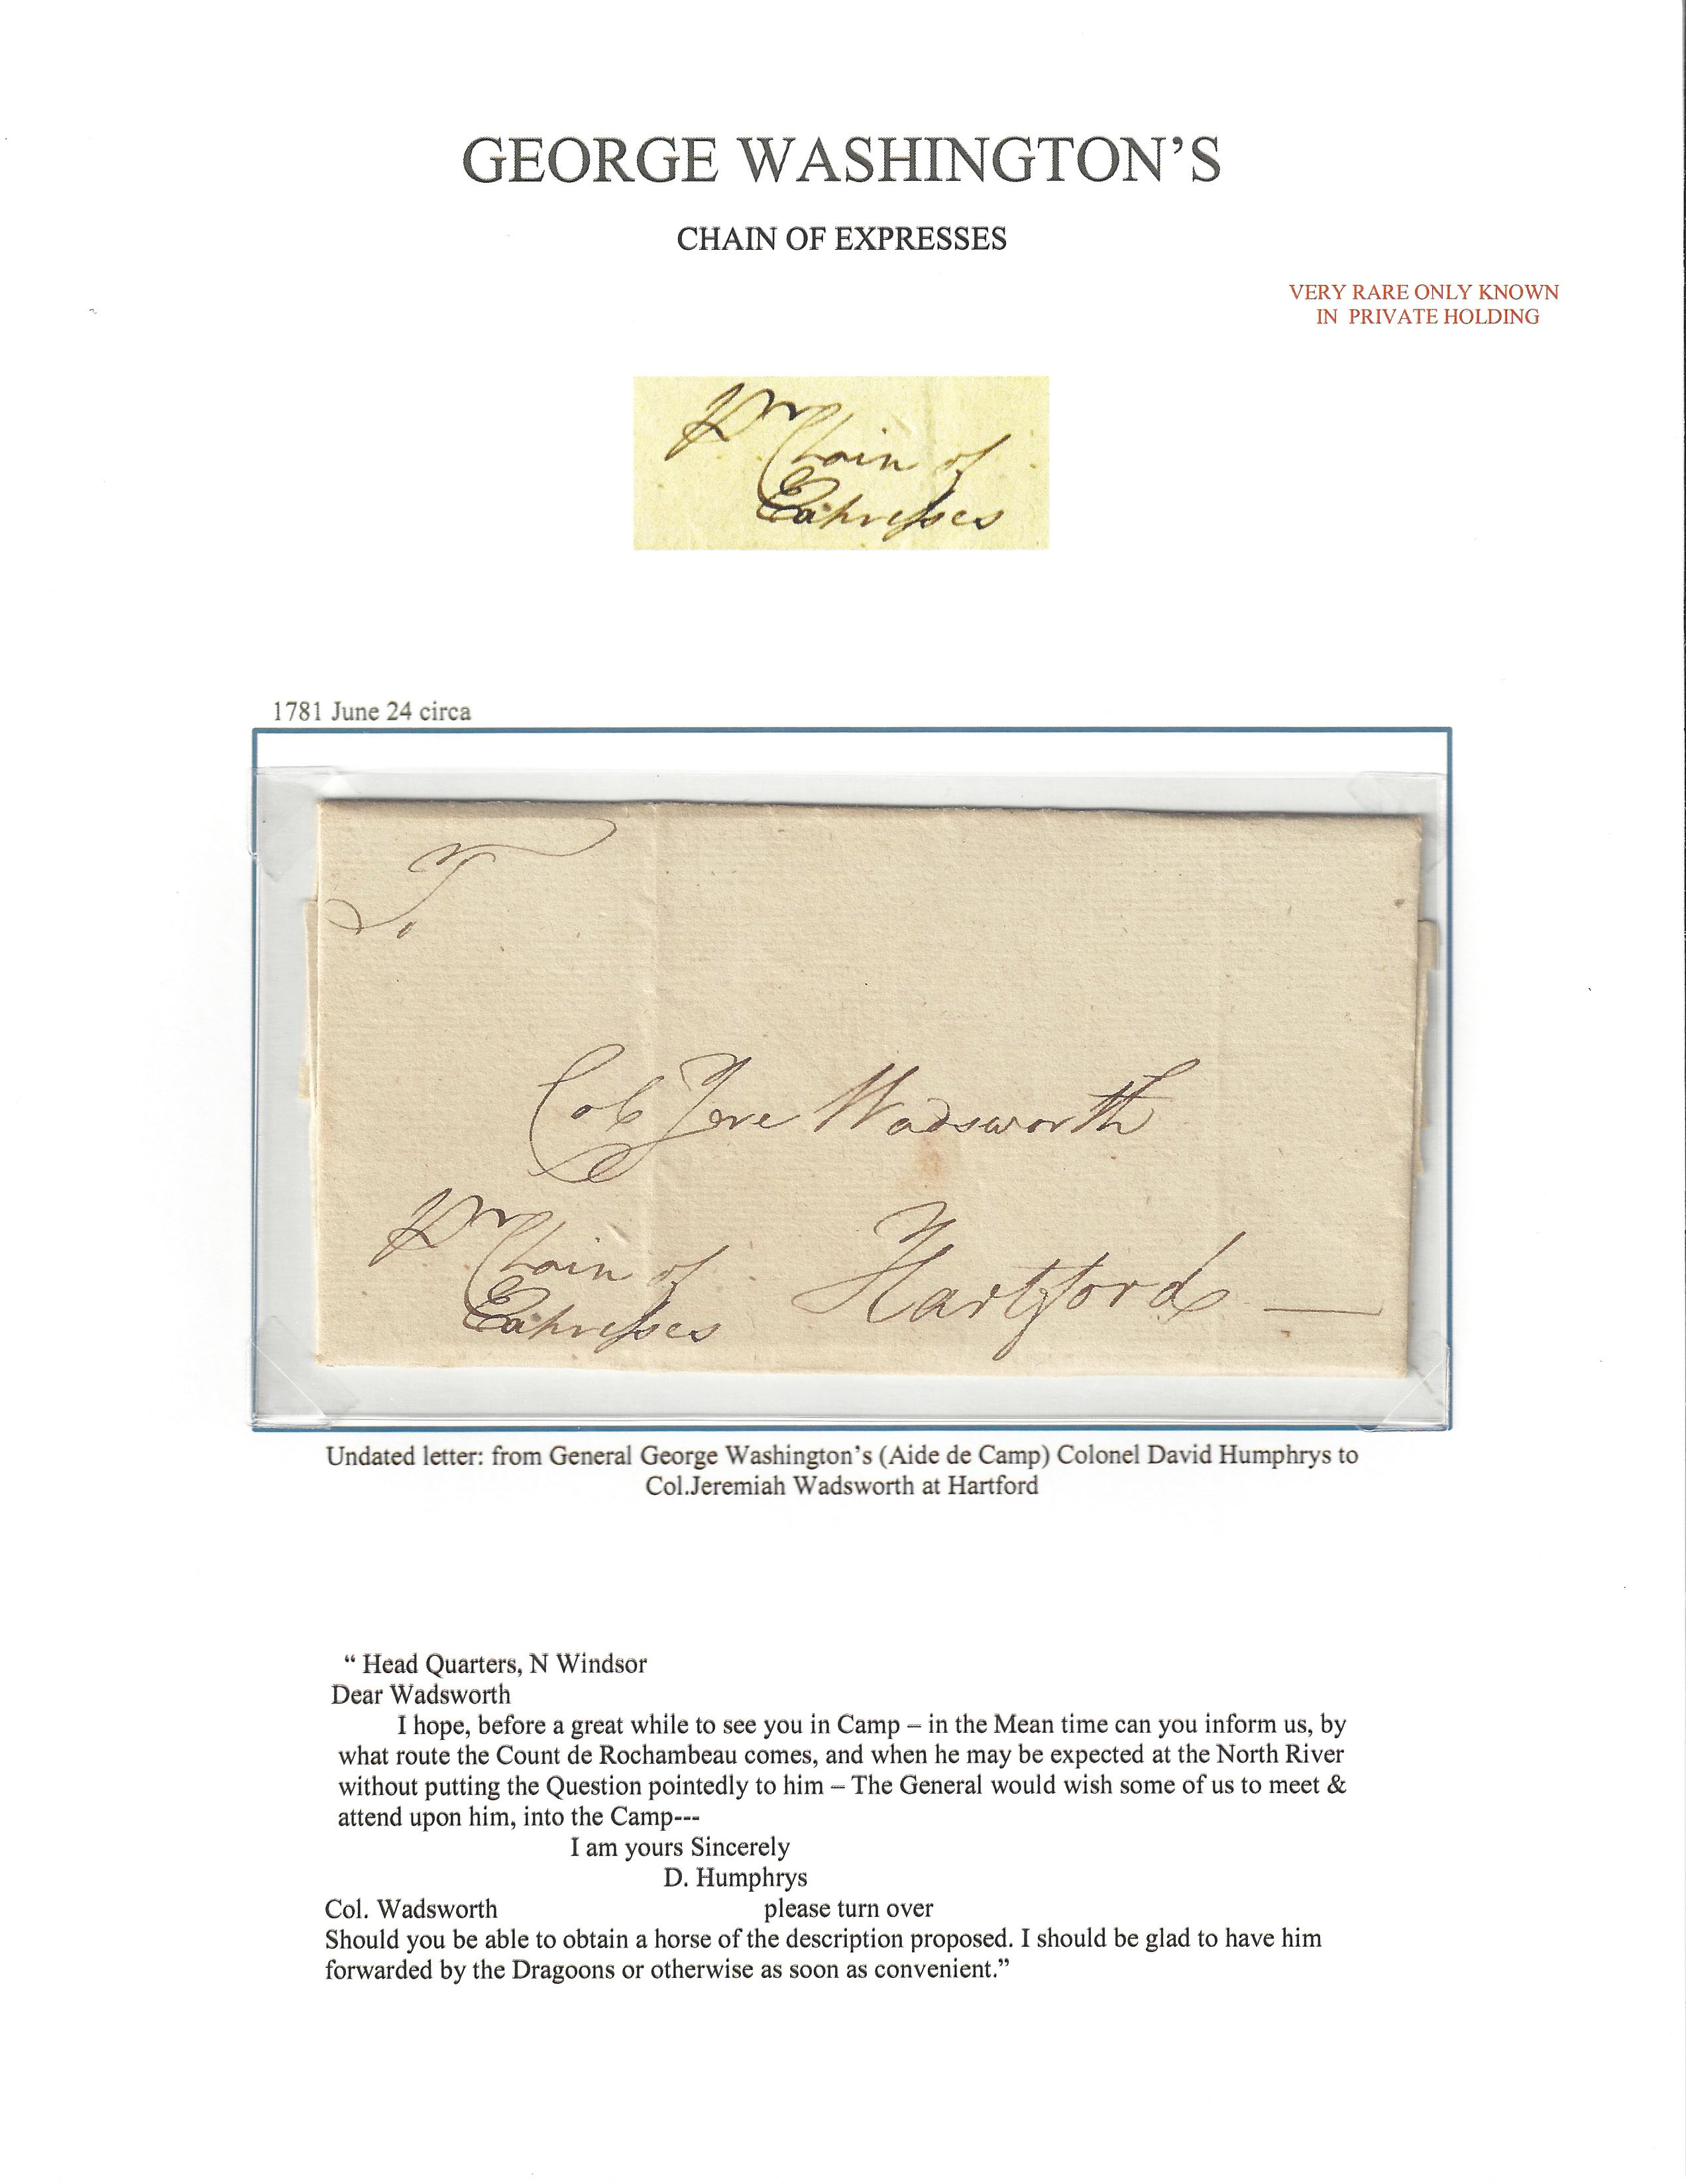 GEORGE WASHINGTON'S
CHAIN OF EXPRESSES
VERY RARE ONLY KNOWN
IN PRIVATE HOLDING
Pr Chain of
Expresses
1781 June 24 circa
To
Col Jere Wadsworth
Pr Chain of
Expresses
Hartford —
Undated letter: from General George Washington's (Aide de Camp) Colonel David Humphrys to
Col.Jeremiah Wadsworth at Hartford
“ Head Quarters, N Windsor
Dear Wadsworth
I hope, before a great while to see you in Camp – in the Mean time can you inform us, by
what route the Count de Rochambeau comes, and when he may be expected at the North River
without putting the Question pointedly to him – The General would wish some of us to meet &
attend upon him, into the Camp---
I am yours Sincerely
D. Humphrys
Col. Wadsworth please turn over
Should you be able to obtain a horse of the description proposed. I should be glad to have him
forwarded by the Dragoons or otherwise as soon as convenient.”